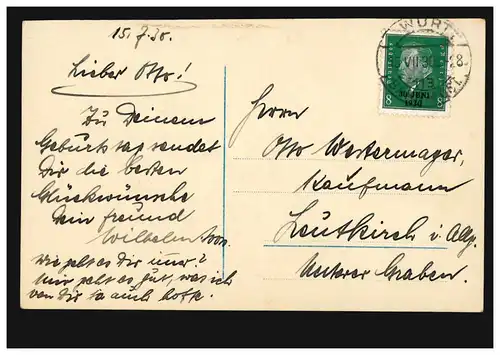 15.7.30.
Lieber Otto!
Zu Deinem
Geburtstag sendet
Dir die besten
Glückwünsche
Dein Freund
Wilhelm
Wie geht es Dir immer?
Mir geht es gut, was ich
von Dir ja auch hoffe.
WÜRTT
VII 30
30. JUNI
1930
8 8
Herrn
Otto Westermayer,
Kaufmann
Leutkirch i. Allg.
Unterer Graben.